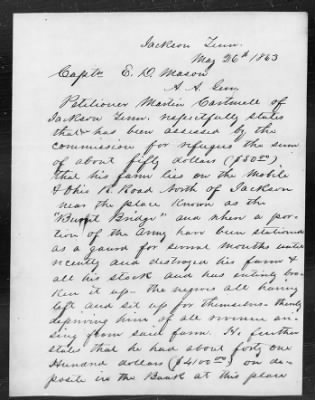 Jackson Tenn.
May 26th 1863
Captn E. D. Mason
A. A. Gen
Petitioner Martin Cartmell of
Jackson Tenn. respectfully states
that has been assessed by the
commission for refugees the sum
of about fifty dollars ($50.00)
that his farm lies on the Mobile
& Ohio R. Road North of Jackson
near the place known as the
"Burnt Bridge" and when a por-
tion of the Army have been stationed
as a gaurd for several months until
recently and destroyed his farm &
all his stock and has entirely bro-
ken it up - the negroes all having
left and set up for themselves - thereby
depriving him of all revenue ari-
sing from said farm. He further
states that he had about forty one
Hundred dollars ($4100.00) on de-
posite in the Bank at this place